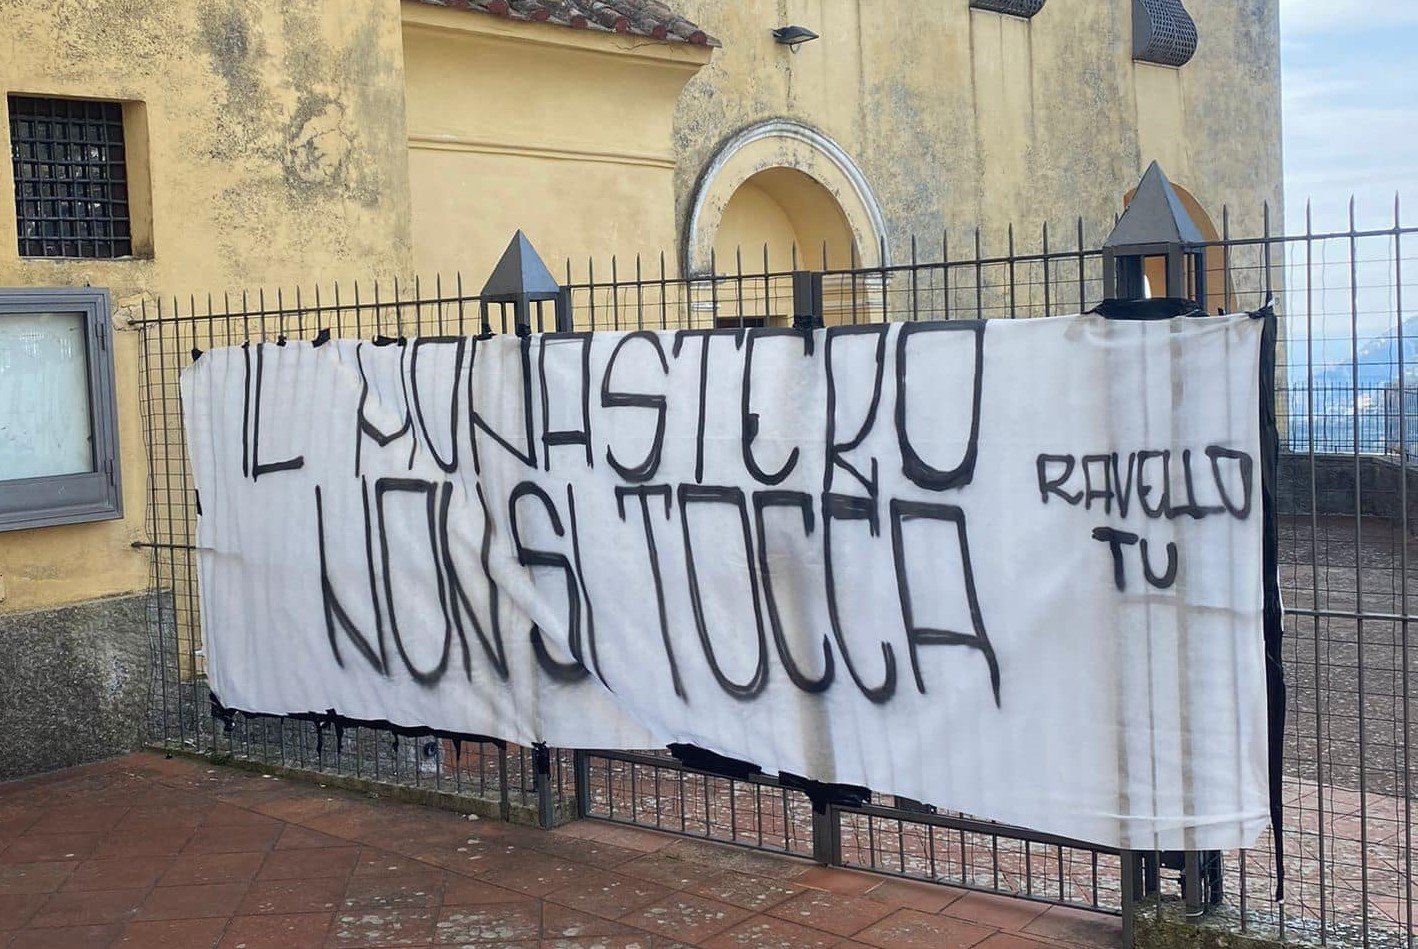 IL MONASTERO
NON SI TOCCA
RAVELLO
TU